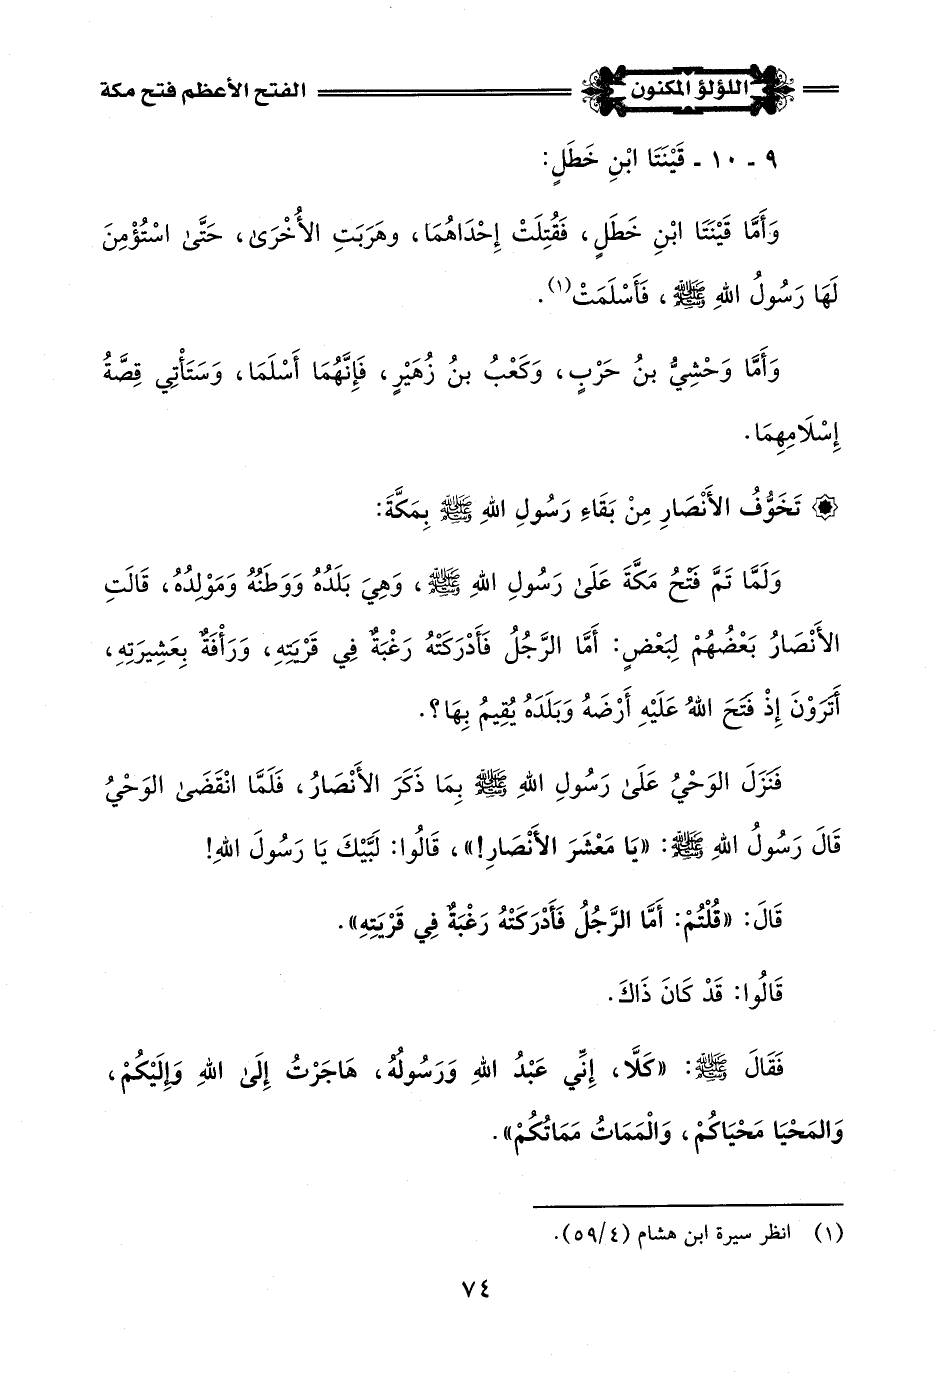 اللؤلؤ المكنون الفتح الأعظم فتح مكة
٩ - ١٠ - قَيْنَتَا ابْنِ خَطَلٍ:
وَأَمَّا قَيْنَتَا ابْنِ خَطَلٍ، فَقُتِلَتْ إِحْدَاهُمَا، وهَرَبَتِ الأُخْرَىٰ، حَتَّىٰ اسْتُؤْمِنَ
لَهَا رَسُولُ اللهِ ﷺ، فَأَسْلَمَتْ(١).
وَأَمَّا وَحْشِيُّ بنُ حَرْبٍ، وَكَعْبُ بنُ زُهَيْرٍ، فَإِنَّهُمَا أَسْلَمَا، وَسَتَأْتِي قِصَّةُ
إِسْلَامِهِمَا.
۞ تَخَوُّفُ الأَنْصَارِ مِنْ بَقَاءِ رَسُولِ اللهِ ﷺ بِمَكَّةَ:
وَلَمَّا تَمَّ فَتْحُ مَكَّةَ عَلَىٰ رَسُولِ اللهِ ﷺ، وَهِيَ بَلَدُهُ وَوَطَنُهُ وَمَوْلِدُهُ، قَالَتِ
الأَنْصَارُ بَعْضُهُمْ لِبَعْضٍ: أَمَّا الرَّجُلُ فَأَدْرَكَتْهُ رَغْبَةٌ فِي قَرْيَتِهِ، وَرَأْفَةٌ بِعَشِيرَتِهِ،
أَتَرَوْنَ إِذْ فَتَحَ اللهُ عَلَيْهِ أَرْضَهُ وَبَلَدَهُ يُقِيمُ بِهَا؟.
فَنَزَلَ الوَحْيُ عَلَىٰ رَسُولِ اللهِ ﷺ بِمَا ذَكَرَ الأَنْصَارُ، فَلَمَّا انْقَضَىٰ الوَحْيُ
قَالَ رَسُولُ اللهِ ﷺ: «يَا مَعْشَرَ الأَنْصَارِ!»، قَالُوا: لَبَّيْكَ يَا رَسُولَ اللهِ!
قَالَ: «قُلْتُمْ: أَمَّا الرَّجُلُ فَأَدْرَكَتْهُ رَغْبَةٌ فِي قَرْيَتِهِ».
قَالُوا: قَدْ كَانَ ذَاكَ.
فَقَالَ ﷺ: «كَلَّا، إِنِّي عَبْدُ اللهِ وَرَسُولُهُ، هَاجَرْتُ إِلَىٰ اللهِ وَإِلَيْكُمْ،
وَالمَحْيَا مَحْيَاكُمْ، وَالْمَمَاتُ مَمَاتُكُمْ».
(١) انظر سيرة ابن هشام (٥٩/٤).
٧٤